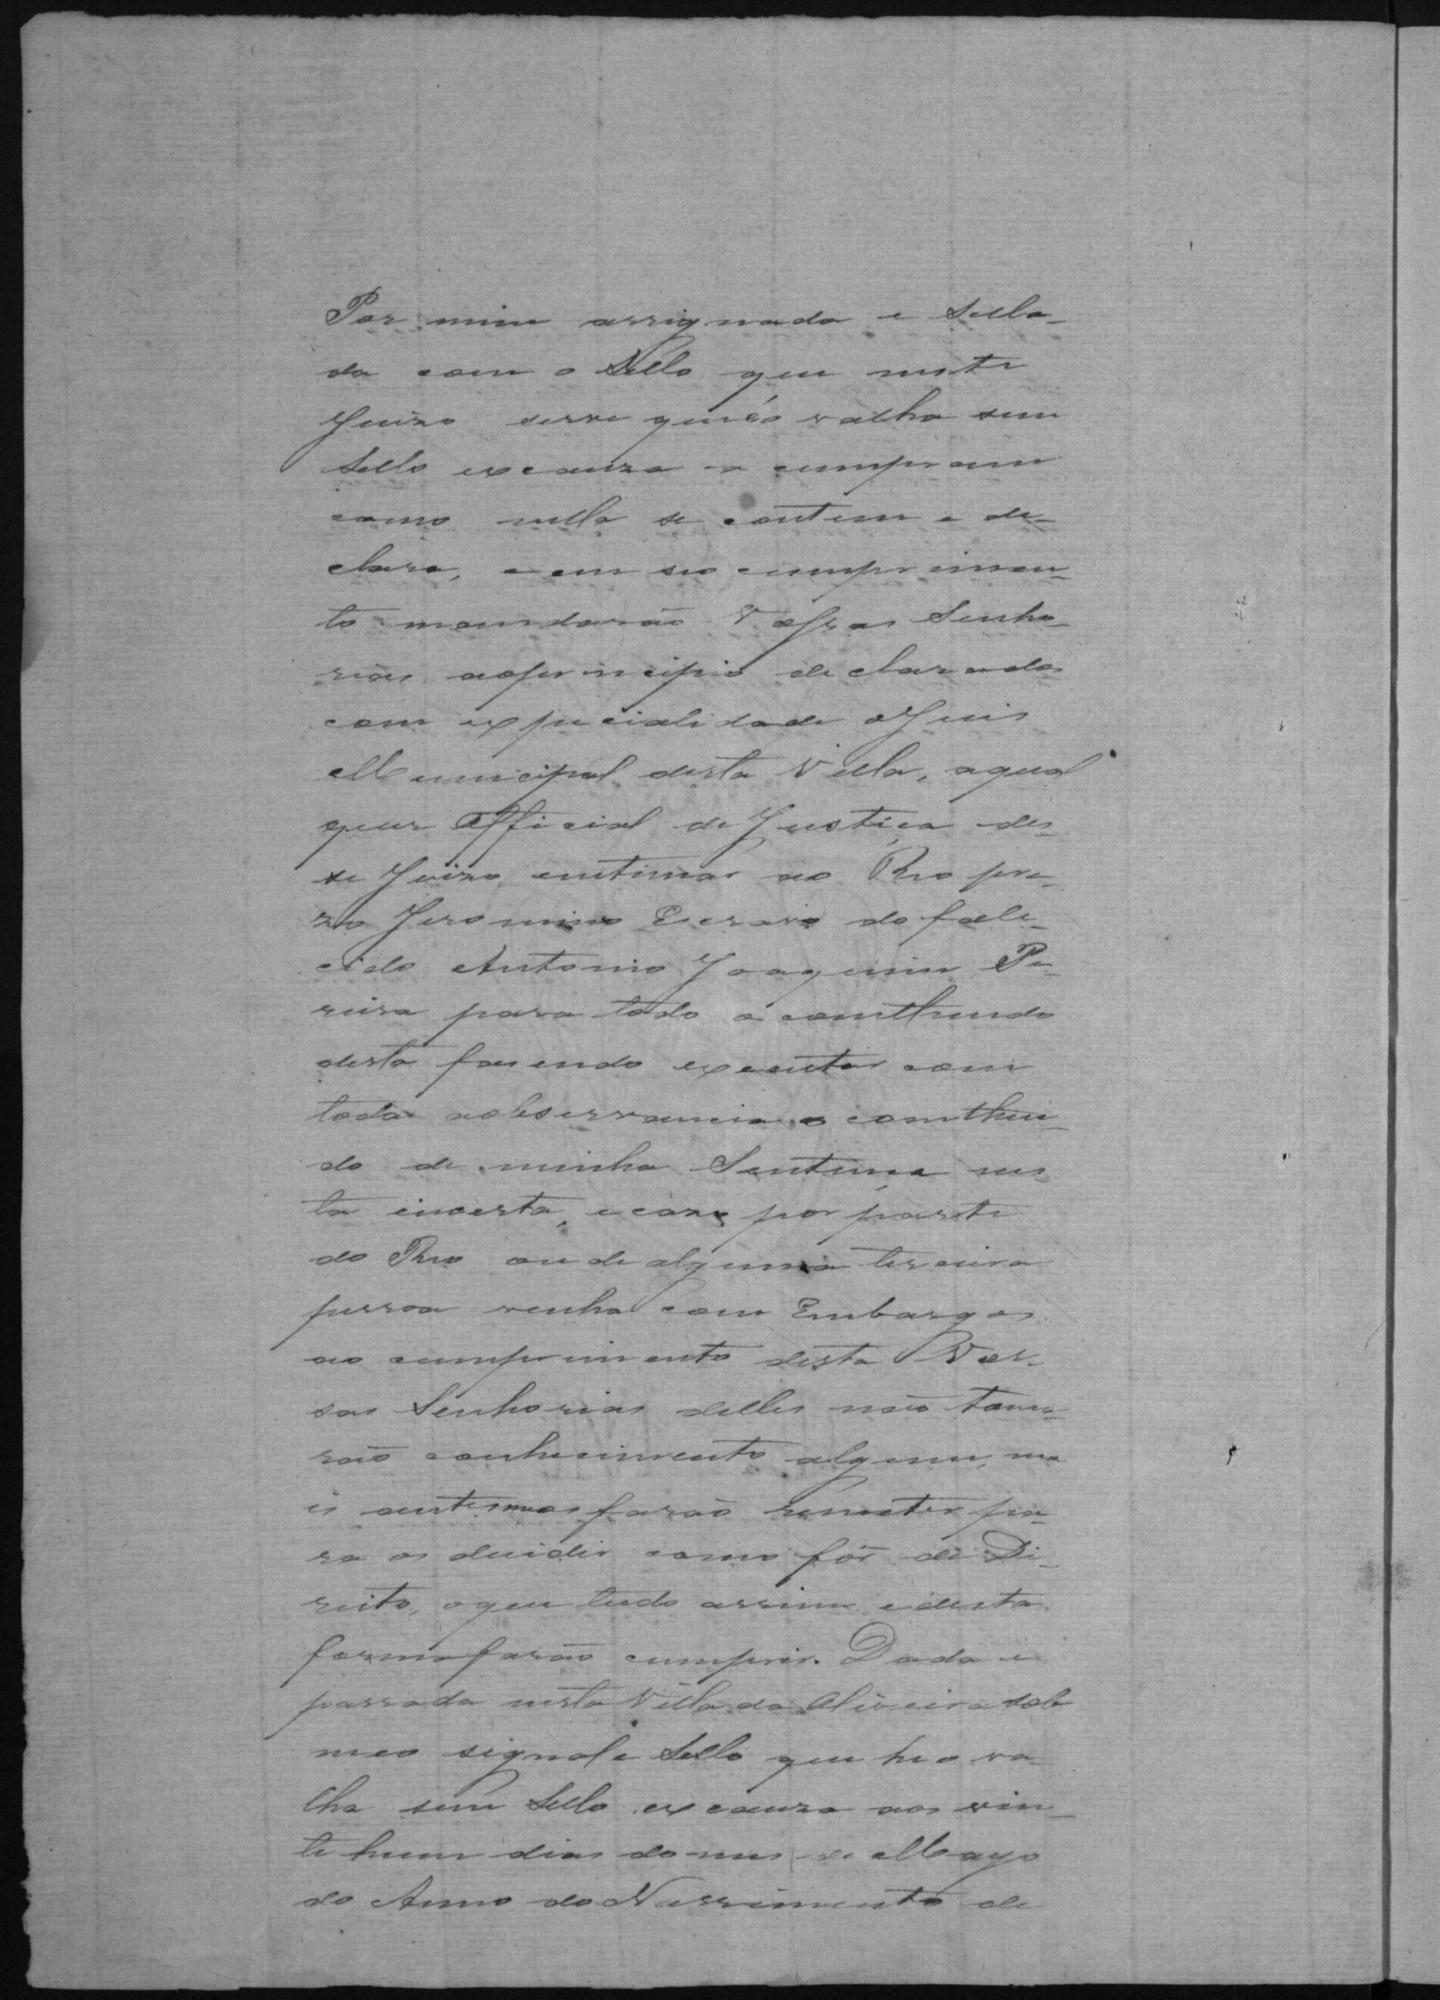 Por mim assignada e Sella-
da com o Sello que neste
Juizo serve que é o valha sem
Sello ex cauza e cumpram
como nella se contem e de-
clara, e em seo cumprimen-
to mandarão Vossas Senho-
rias ao principio declarados
com expecialidade o Juis
Municipal desta Villa, a qual
quer Official de Justiça des-
se Juizo entimar ao Reo pre-
zo Jeronimo Escravo do fale-
cido Antonio Joaquim Pe-
reira para todo o comtheudo
desta fasendo executar com
toda a observancia o comtheu-
do de minha Sentença nes-
ta incerta, e cazo por parte
do Reo ou de alguma terceira
pessoa venha com Embargos
ao cumprimento desta Vos-
sas Senhorias delles não toma-
rão conhecimento algum, ma
is antes mos farão remeter pa-
ra os decidir como fôr de Di-
reito, o que tudo assim e desta
forma farão cumprir. Dada e
passada nesta Villa da Oliveira sob
meo signal e Sello que he o va-
lha sem Sello ex cauza aos vin-
te hum dias do mes de Mayo
do Anno do Nassimento de